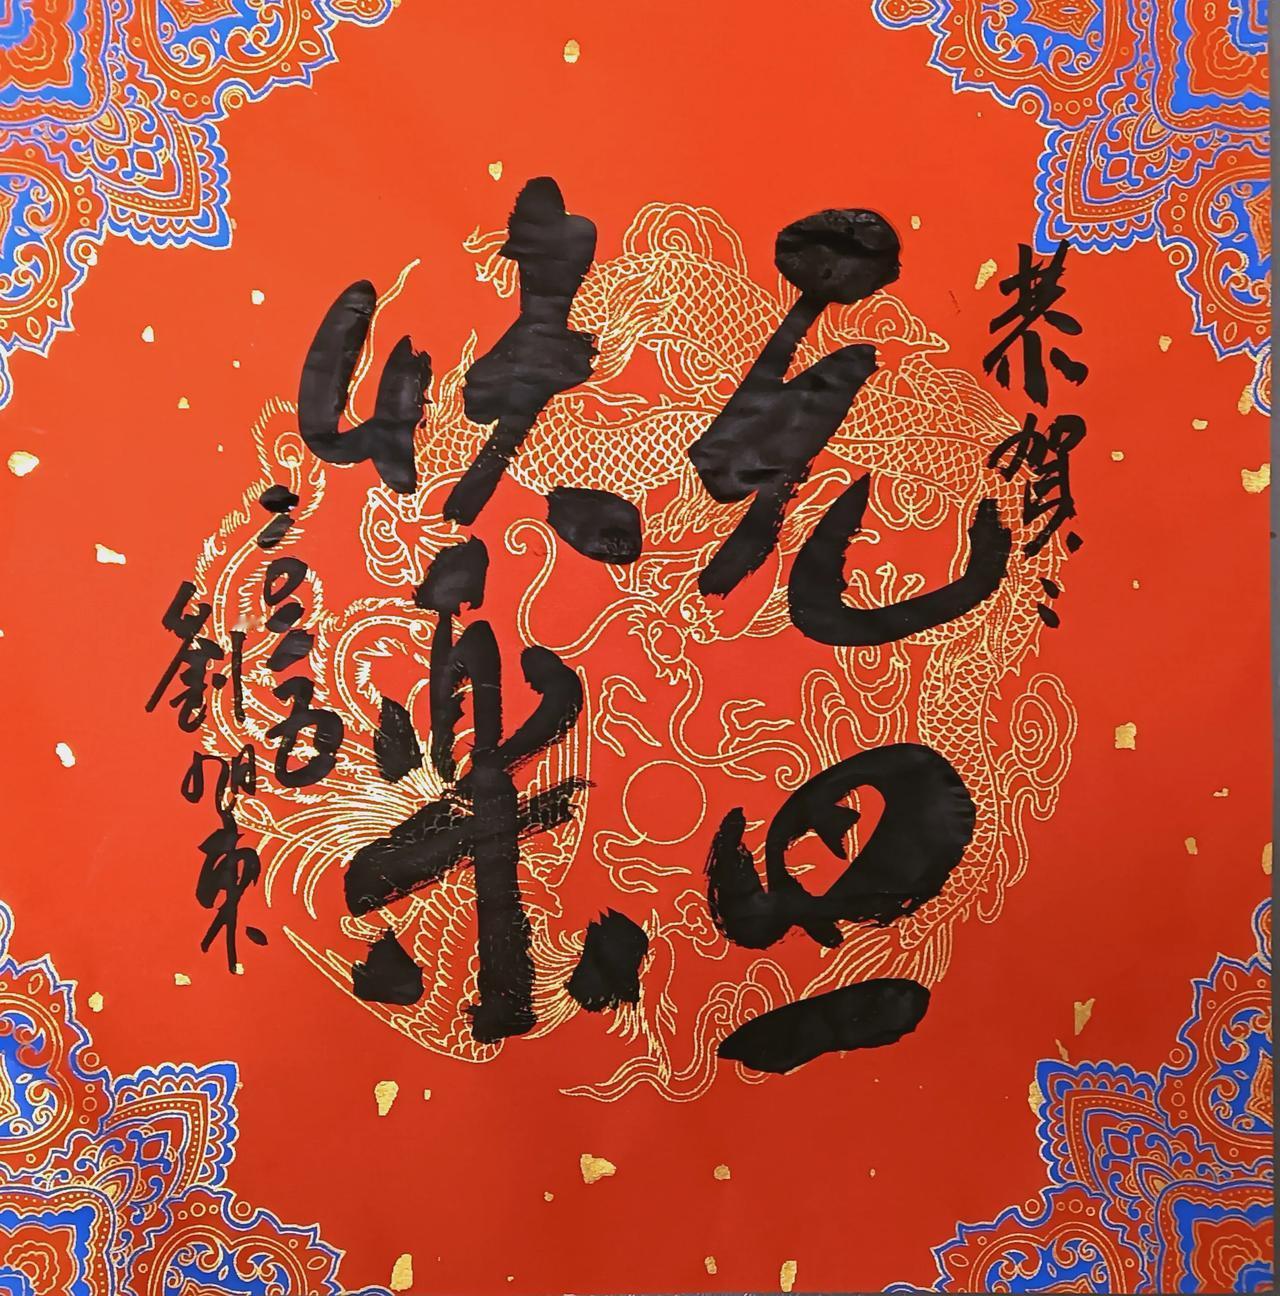 恭賀：
元旦
快樂
二〇二五
劉旭東